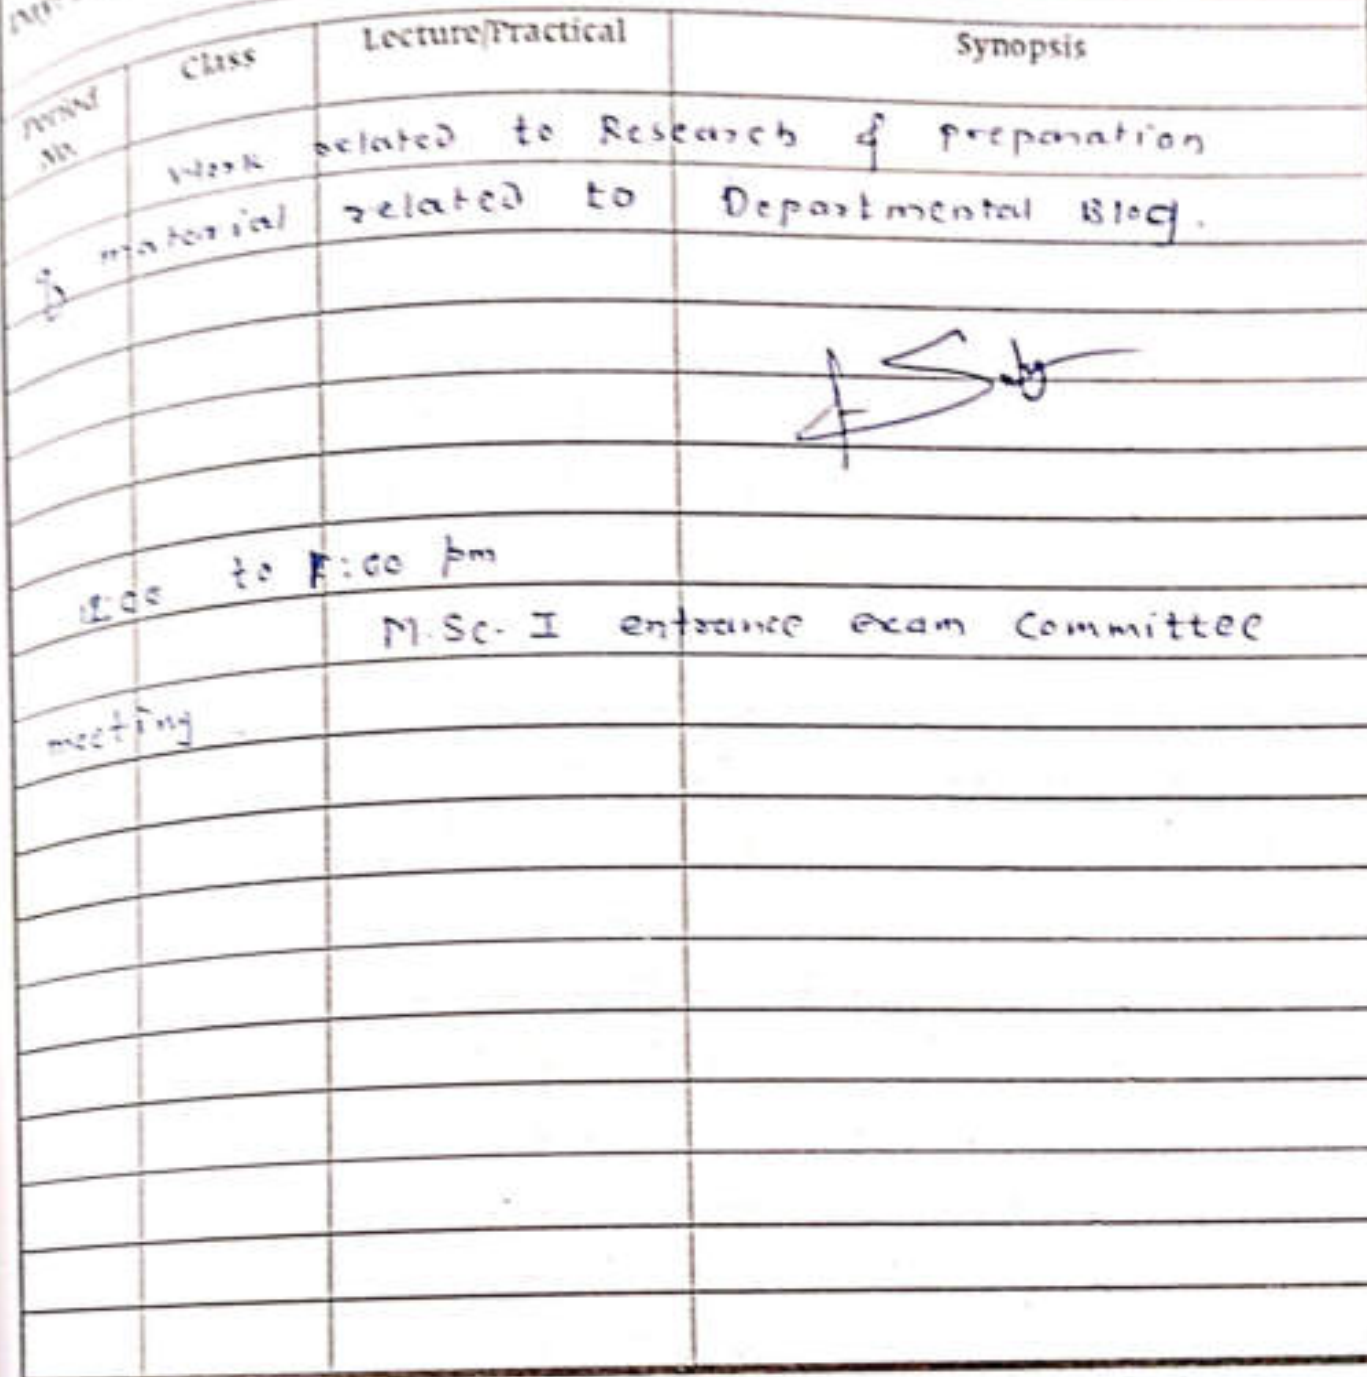 Period No. Class Lecture/Practical Synopsis
Work related to Research & preparation
of material related to Departmental Blog.
to :00 pm
M.Sc. I entrance exam Committee
meeting